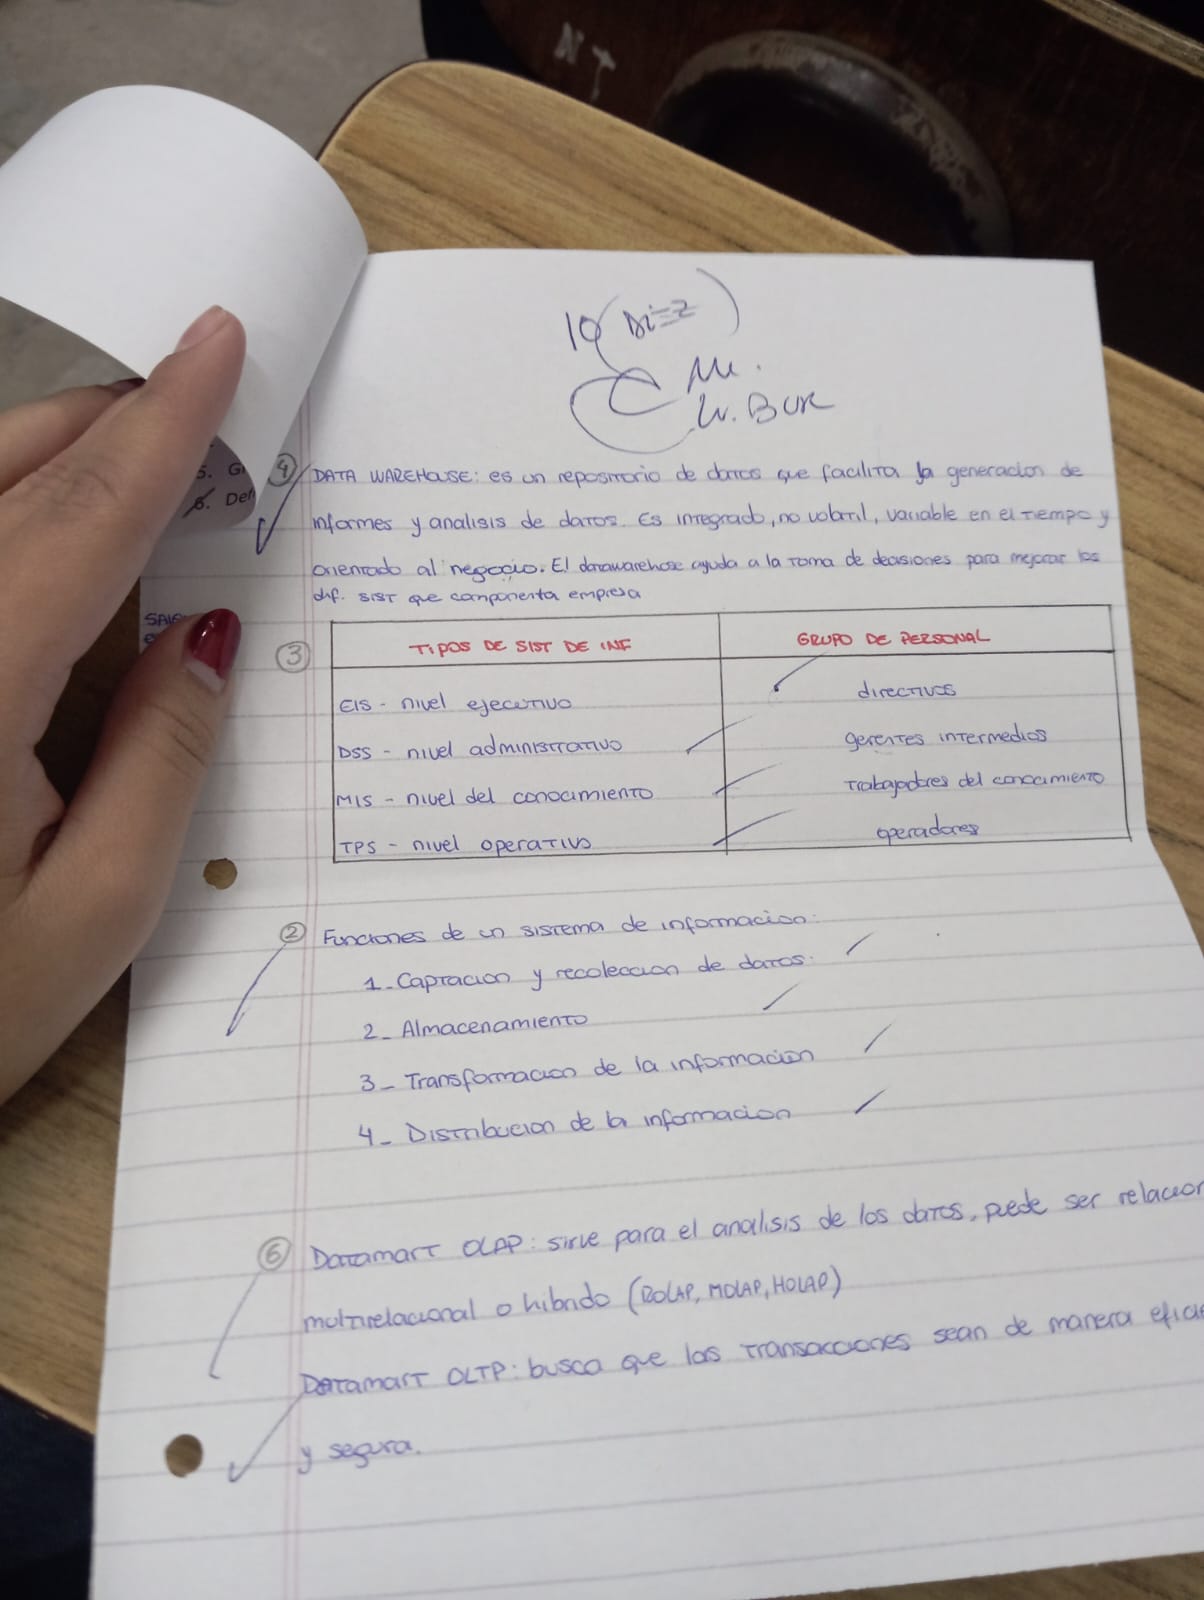 NT
10 (Diez)
W. BUR
5. G
6. Def
④ DATA WAREHOUSE: es un repositorio de datos que facilita la generacion de
informes y analisis de datos. Es integrado, no volatil, variable en el tiempo y
orientado al negocio. El datawarehose ayuda a la toma de decisiones para mejorar los
dif. SIST que componenta empresa
③ TIPOS DE SIST DE INF | GRUPO DE PERSONAL
EIS - nivel ejecutivo | directivos
DSS - nivel administrativo | gerentes intermedios
MIS - nivel del conocimiento | Trabajadores del conocimiento
TPS - nivel operativo | operadores
② Funciones de un sistema de informacion:
1- Captacion y recoleccion de datos.
2- Almacenamiento
3- Transformacion de la informacion
4- Distribucion de la informacion
⑥ Datamart OLAP: sirve para el analisis de los datos, puede ser relacion
multirelacional o hibrido (ROLAP, MOLAP, HOLAP)
Datamart OLTP: busca que las transacciones sean de manera eficie
y segura.